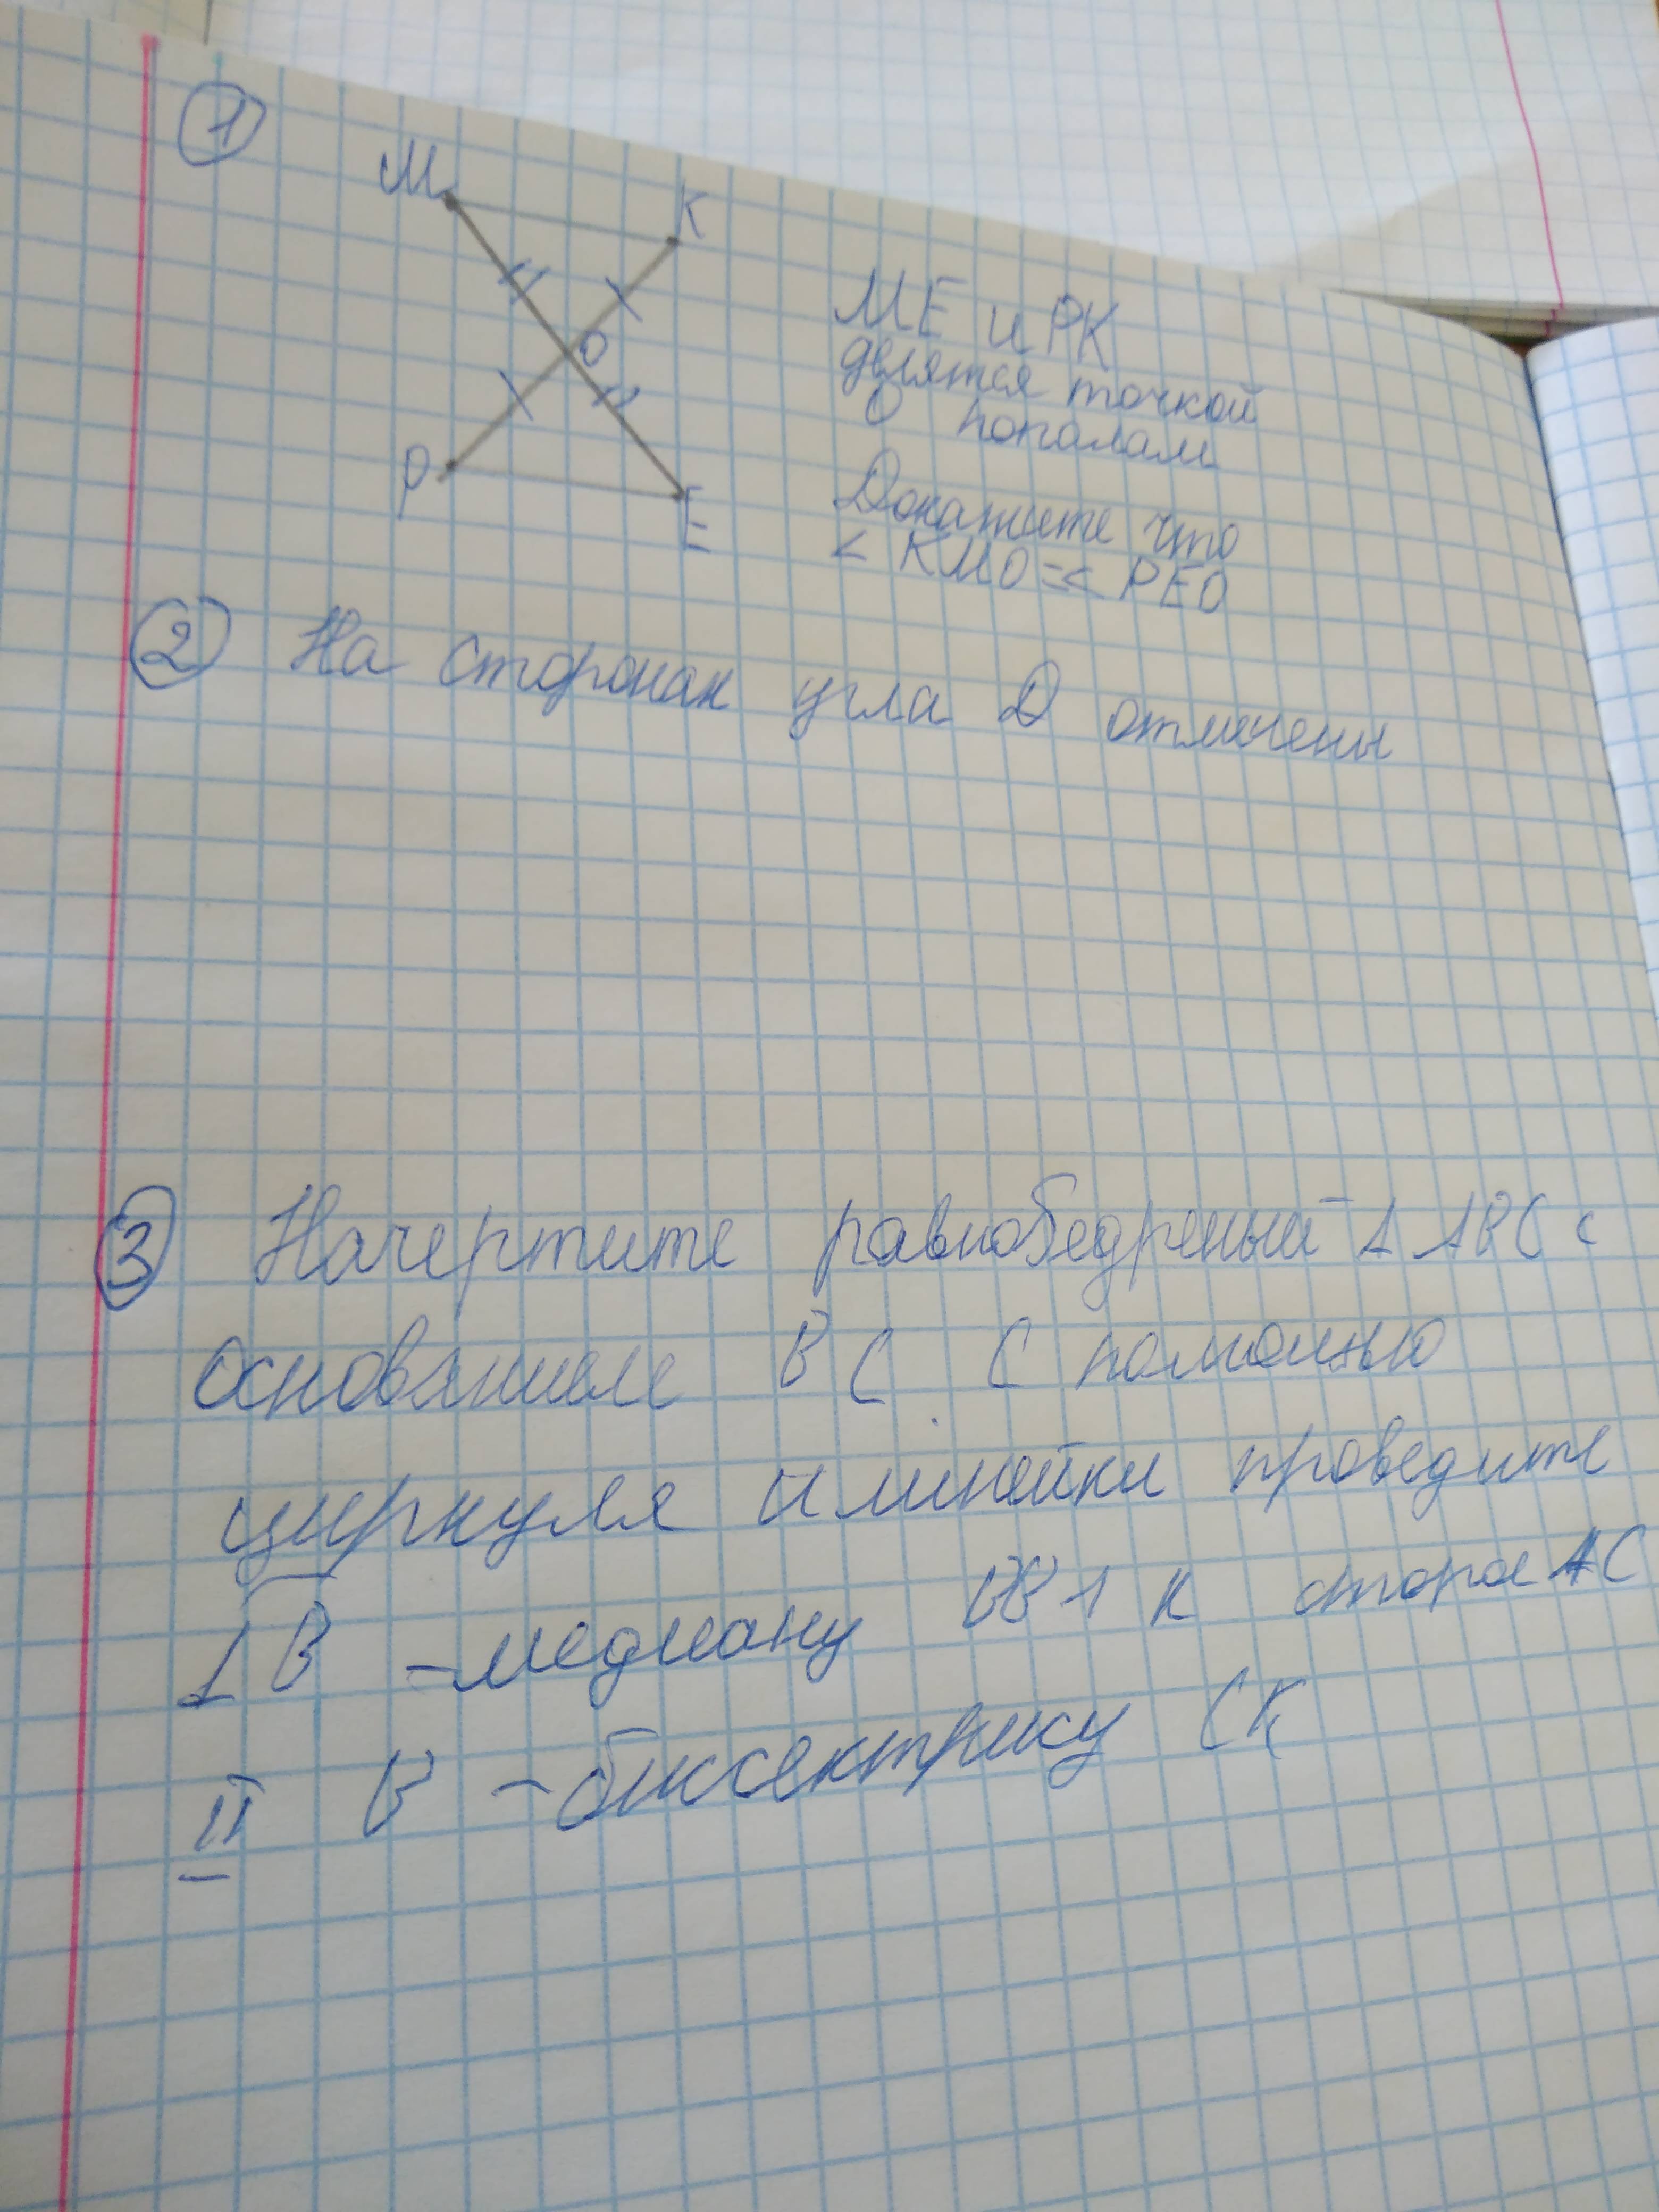 1
М
К
О
Р
Е
МЕ и РК
делятся точкой
О пополам
Докажите что
< КМО = < РЕО
2 На сторонах угла D отмечены
3 Начертите равнобедреный Δ АВС с
основанием ВС С помощью
циркуля и линейки проведите
I В - медиану ВВ1 к сторое АС
II В - биссектрису СК